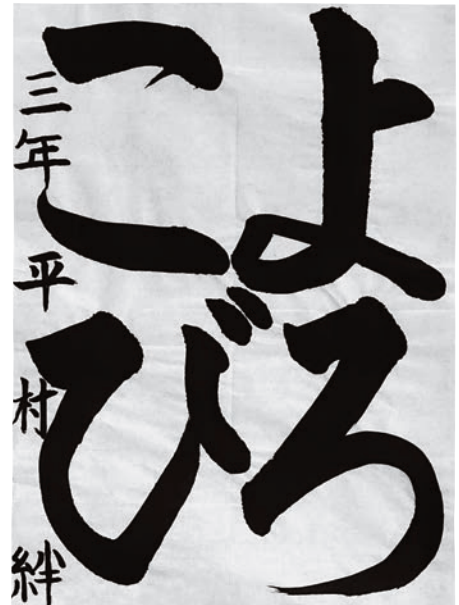 よろ
こび
三年 平村 絆